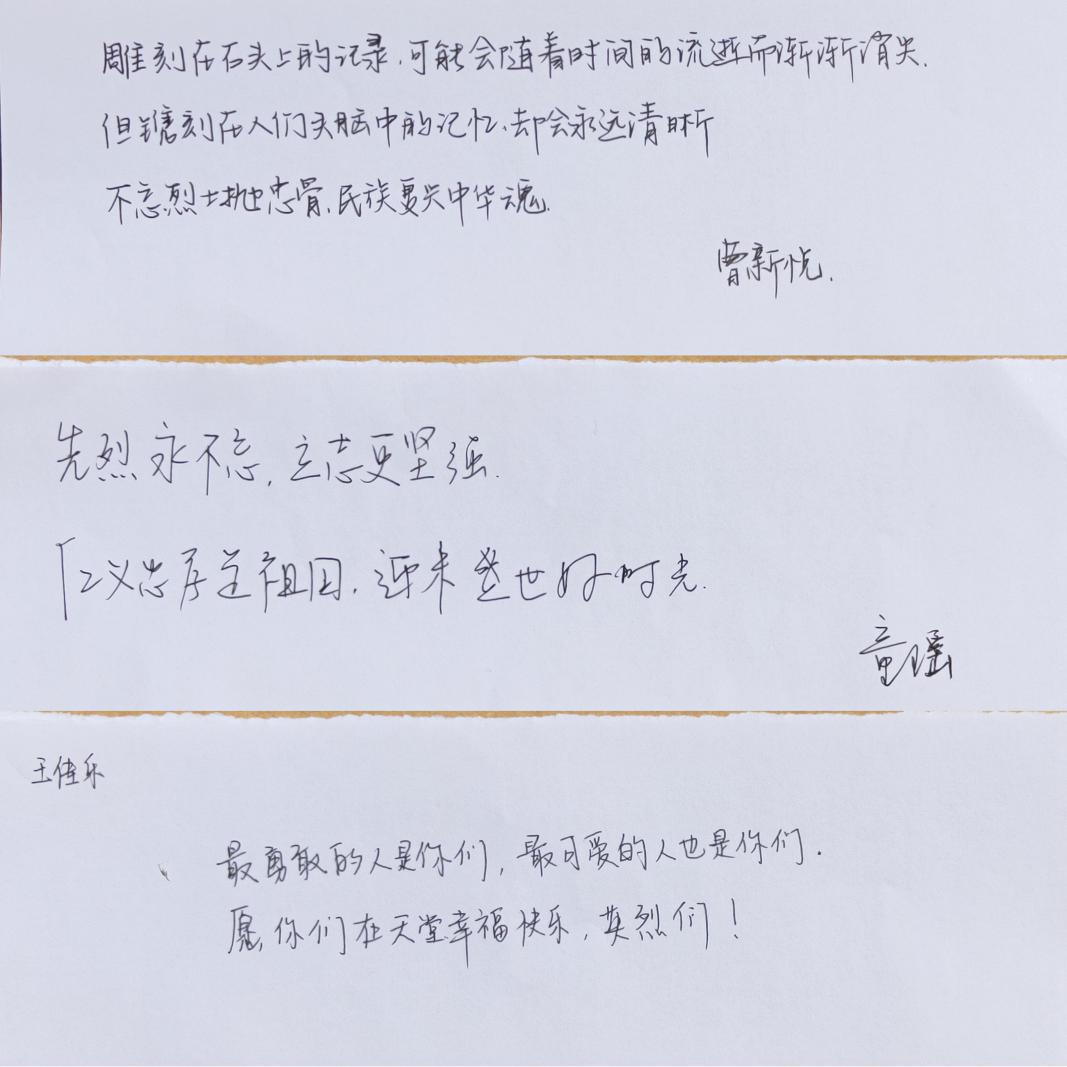 雕刻在石头上的记录.可能会随着时间的流逝而渐渐消失.
但镌刻在人们头脑中的记忆.却会永远清晰
不忘烈士抛忠骨.民族复兴中华魂.
曹新悦.
先烈永不忘,立志更坚强.
仁义忠孝兰祖国.迎来盛世好时光.
童瑶
王佳乐
最勇敢的人是你们,最可爱的人也是你们.
愿你们在天堂幸福快乐,英烈们!